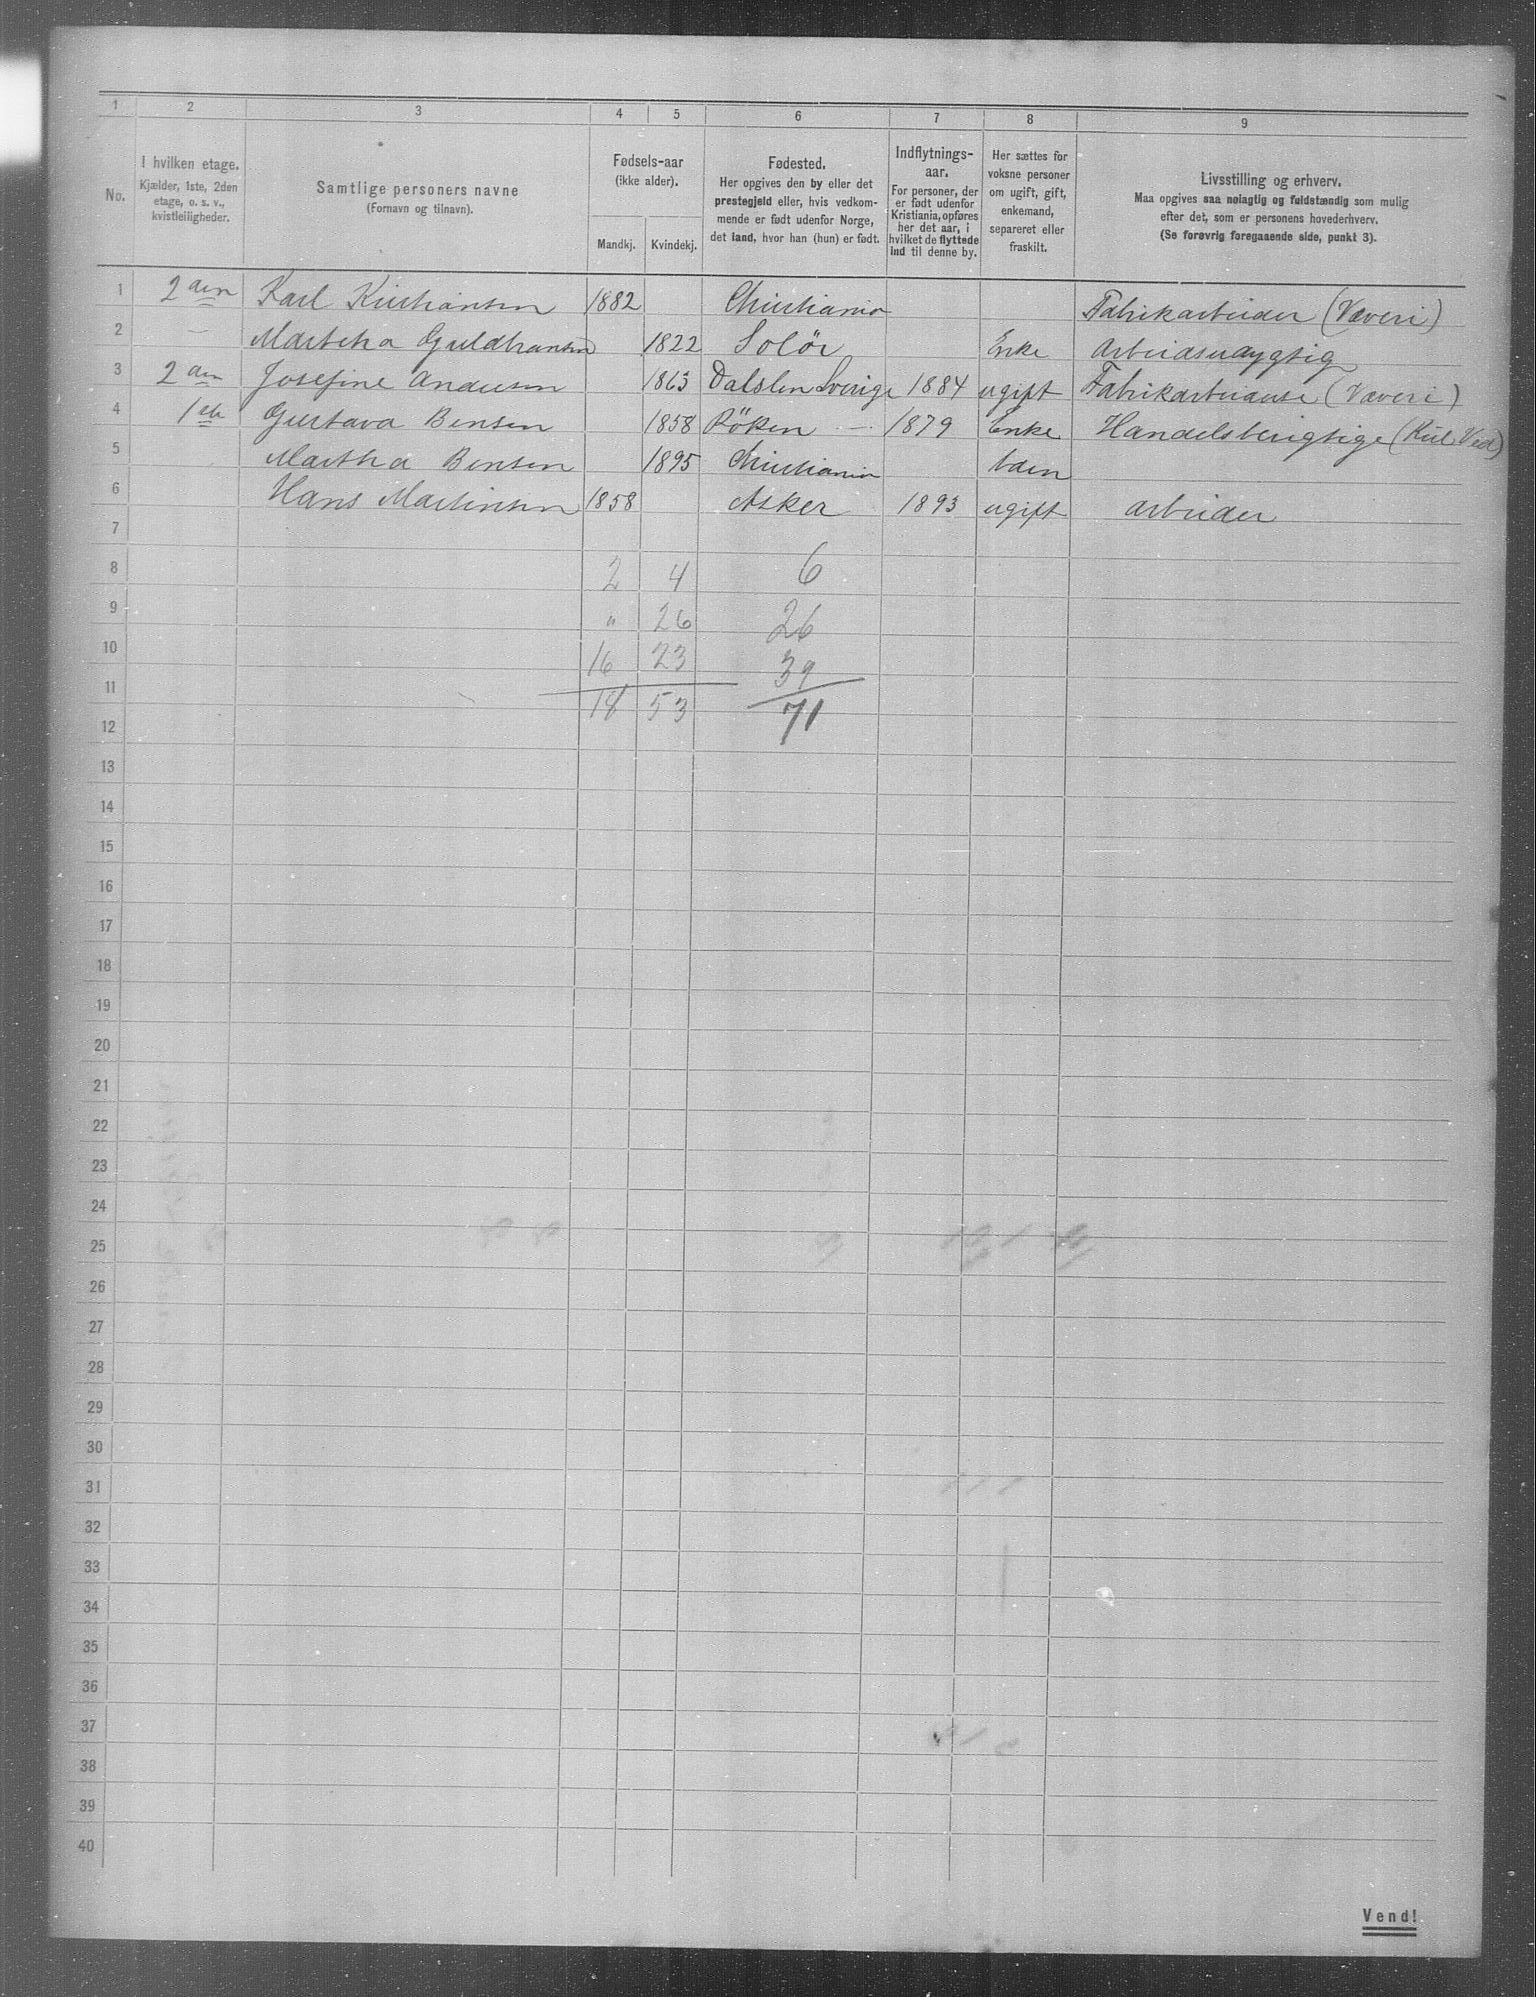 1 2 3 4 5 6 7 8 9
No. I hvilken etage. Kjælder, 1ste, 2den etage, o. s. v., kvistleiligheder. Samtlige personers navne (Fornavn og tilnavn). Fødsels-aar (ikke alder). Mandkj. Kvindekj. Fødested. Her opgives den by eller det prestegjeld eller, hvis vedkommende er født udenfor Norge, det land, hvor han (hun) er født. Indflytnings-aar. For personer, der er født udenfor Kristiania, opføres her det aar, i hvilket de flyttede ind til denne by. Her sættes for voksne personer om ugift, gift, enkemand, separeret eller fraskilt. Livsstilling og erhverv. Maa opgives saa nøiagtig og fuldstændig som mulig efter det, som er personens hovederhverv. (Se forøvrig foregaaende side, punkt 3).
1 2den Karl Kristiansen 1882 Christiania Fabrikarbeider (Væveri)
2 — Martha Guldbransen 1822 Solör Enke Arbeidsudygtig
3 2den Josefine Andersen 1863 Dalslen Sverige 1884 ugift Fabrikarbeiderse (Væveri)
4 1ste Gustava Bensen 1858 Röken — 1879 Enke Handelsberigtige (Kul Ved)
5 Martha Bensen 1895 Christiania barn
6 Hans Martinsen 1858 Asker 1893 ugift arbeider
7
8 2 4 6
9 " 26 26
10 16 23 39
11 18 53 71
12
13
14
15
16
17
18
19
20
21
22
23
24
25
26
27
28
29
30
31
32
33
34
35
36
37
38
39
40
Vend!